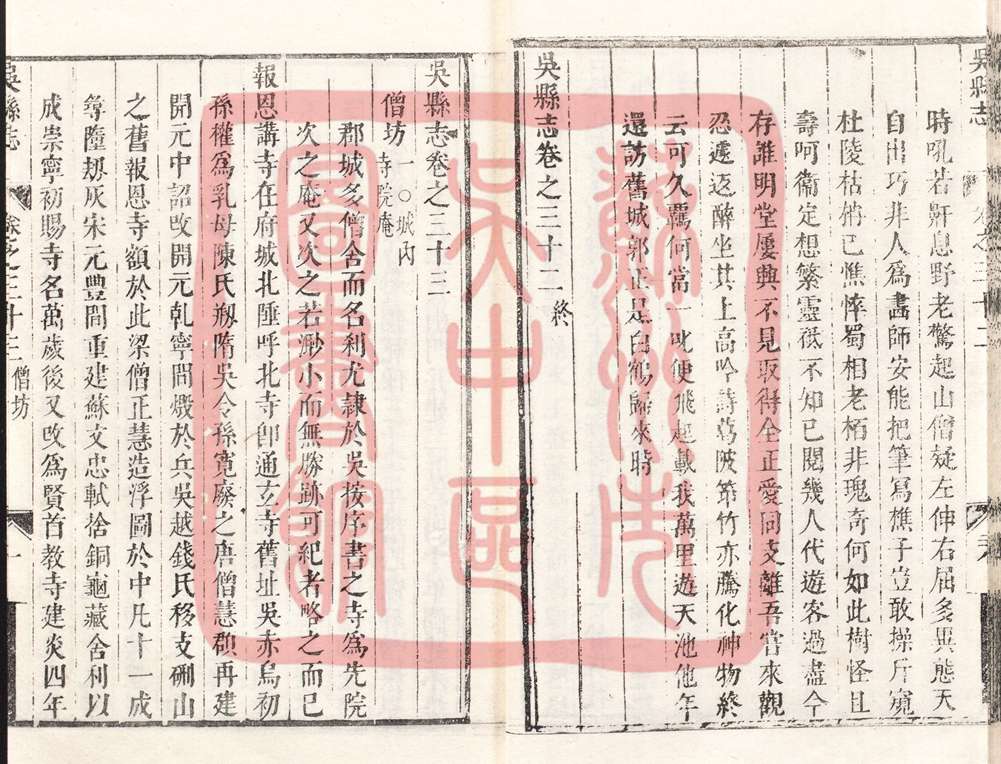 吳縣志
卷之三十二
時吼若鼾息野老驚起山僧疑左伸右屈多異態天
自出巧非人爲畵師安能把筆寫樵子豈敢操斤窺
杜陵枯柟已憔悴蜀相老栢非瑰奇何如此樹怪且
壽呵衞定想繁靈祗不知已閱幾人代遊客過盡今
存誰明堂屢興不見取得全正愛同支離吾嘗來觀
忍遽返醉坐其上高吟詩葛陂節竹亦騰化神物終
云可久覊何當一叱便飛起載我萬里遊天池他年
還訪舊城郭正是白鶴歸來時
吳縣志卷之三十二 終
吳縣志卷之三十三
僧坊一○城內
寺院庵
郡城多僧舍而名刹尤隷於吳按序書之寺爲先院
次之庵又次之若渺小而無勝跡可紀者略之而已
報恩講寺在府城北陲呼北寺卽通玄寺舊址吳赤烏初
孫權爲乳母陳氏剏隋吳令孫寛廢之唐僧慧頵再建
開元中詔改開元乹寧間燬於兵吳越錢氏移支硎山
之舊報恩寺額於此梁僧正慧造浮圖於中凡十一成
尋墮刼灰宋元豐間重建蘇文忠軾捨銅龜藏舍利以
成崇寧初賜寺名萬歲後又改爲賢首教寺建炎四年
吳縣志
卷之三十三 僧坊
一
蘇州市
吳中區
圖書館